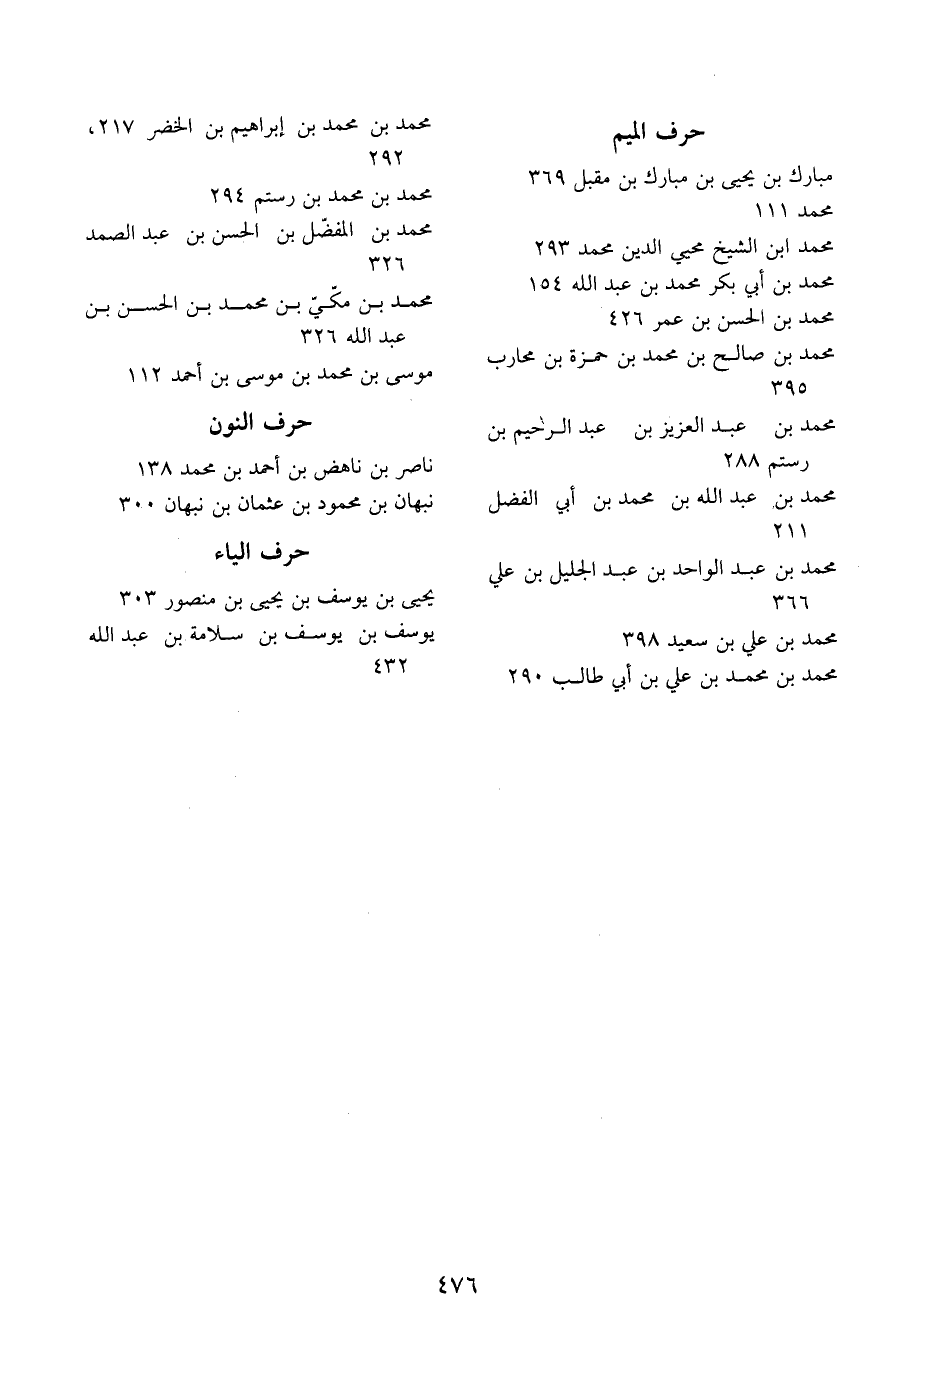 حرف الميم
مبارك بن يحيى بن مبارك بن مقبل ٣٦٩
محمد ١١١
محمد ابن الشيخ محيي الدين محمد ٢٩٣
محمد بن أبي بكر محمد بن عبد الله ١٥٤
محمد بن الحسن بن عمر ٤٢٦
محمد بن صالح بن محمد بن حمزة بن محارب
٣٩٥
محمد بن عبد العزيز بن عبد الرحيم بن
رستم ٢٨٨
محمد بن عبد الله بن محمد بن أبي الفضل
٢١١
محمد بن عبد الواحد بن عبد الجليل بن علي
٣٦٦
محمد بن علي بن سعيد ٣٩٨
محمد بن محمد بن علي بن أبي طالب ٢٩٠
محمد بن محمد بن إبراهيم بن الخضر ٢١٧،
٢٩٢
محمد بن محمد بن رستم ٢٩٤
محمد بن المفضّل بن الحسن بن عبد الصمد
٣٢٦
محمد بن مكّيّ بن محمد بن الحسن بن
عبد الله ٣٢٦
موسى بن محمد بن موسى بن أحمد ١١٢
حرف النون
ناصر بن ناهض بن أحمد بن محمد ١٣٨
نبهان بن محمود بن عثمان بن نبهان ٣٠٠
حرف الياء
يحيى بن يوسف بن يحيى بن منصور ٣٠٣
يوسف بن يوسف بن سلامة بن عبد الله
٤٣٢
٤٧٦